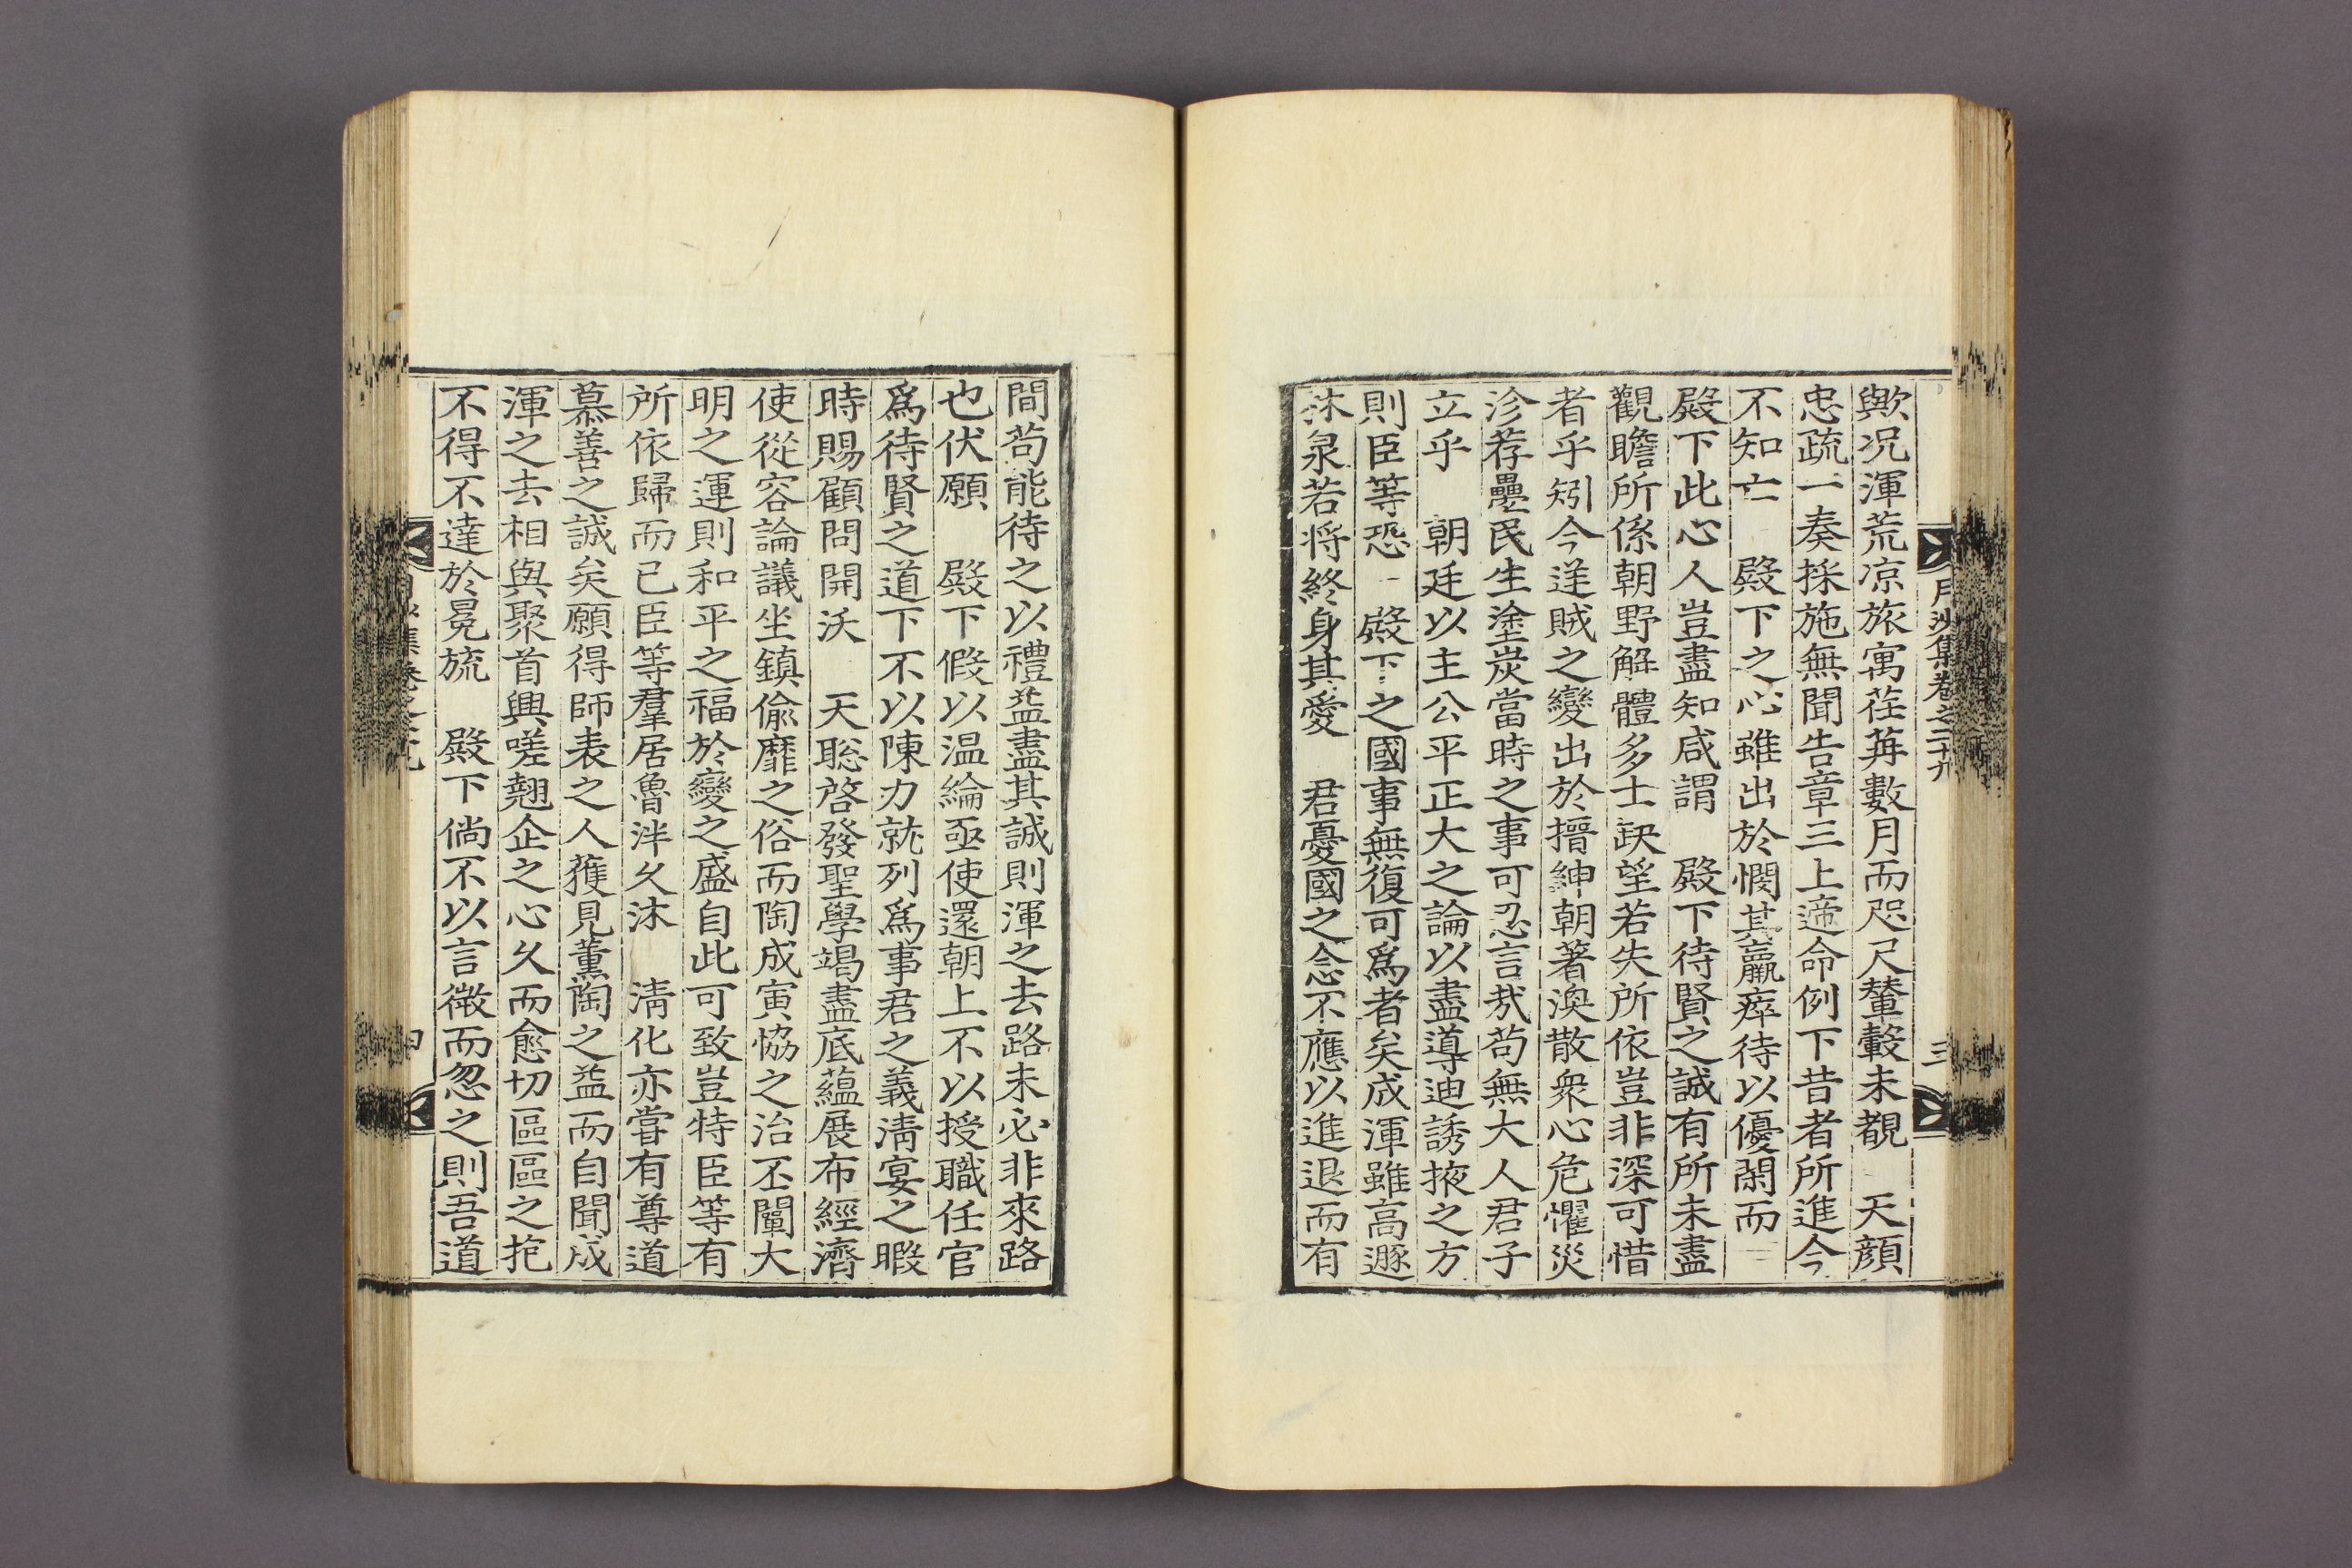 月沙集卷之二十九
三
歟况渾荒凉旅寓荏苒數月而咫尺輦轂未覩 天顔
忠疏一奏採施無聞告章三上遞命例下昔者所進今
不知亡 殿下之心雖出於憫其羸瘁待以優閑而
殿下此心人豈盡知咸謂 殿下待賢之誠有所未盡
觀瞻所係朝野解體多士缺望若失所依豈非深可惜
者乎矧今逆賊之變出於搢紳朝著渙散衆心危懼災
沴荐疊民生塗炭當時之事可忍言㢤苟無大人君子
立乎 朝廷以主公平正大之論以盡導迪誘掖之方
則臣等恐 殿下之國事無復可爲者矣成渾雖高遯
林泉若将終身其愛 君憂國之念不應以進退而有
間苟能待之以禮益盡其誠則渾之去路未必非來路
也伏願 殿下假以温綸亟使還朝上不以授職任官
爲待賢之道下不以陳力就列爲事君之義淸宴之暇
時賜顧問開沃 天聡啓發聖學竭盡底蘊展布經濟
使從容論議坐鎭偸靡之俗而陶成寅恊之治丕闡大
明之運則和平之福於變之盛自此可致豈特臣等有
所依歸而已臣等羣居魯泮久沐 淸化亦嘗有尊道
慕善之誠矣願得師表之人獲見薰陶之益而自聞成
渾之去相與聚首興嗟翹企之心久而愈切區區之抱
不得不達於冕旒 殿下倘不以言微而忽之則吾道